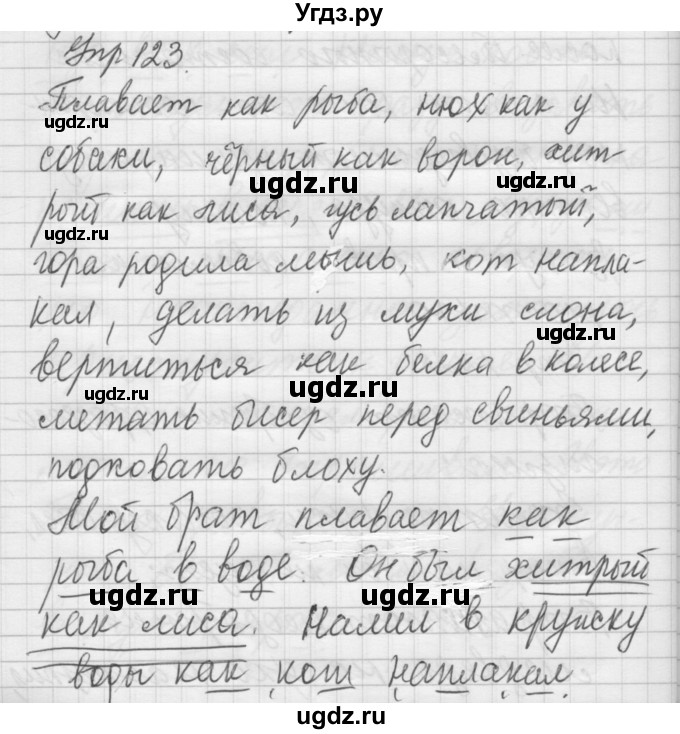 Угдз.ру
Упр 123.
Плавает как рыба, нюх как у
ugdz.ru
собаки, чёрный как ворон, хит-
ugdz.ru ugdz.ru
рый как лиса, гусь лапчатый,
ugdz.ru
гора родила мышь, кот напла-
кал, делать из мухи слона,
ugdz.ru
вертиться как белка в колесе,
ugdz.ru ugdz.ru
метать бисер перед свиньями,
подковать блоху.
Мой брат плавает как
рыба в воде. Он был хитрый
ugdz.ru ugdz.ru
как лиса. Налил в кружку
воды как кот наплакал.
ugdz.ru